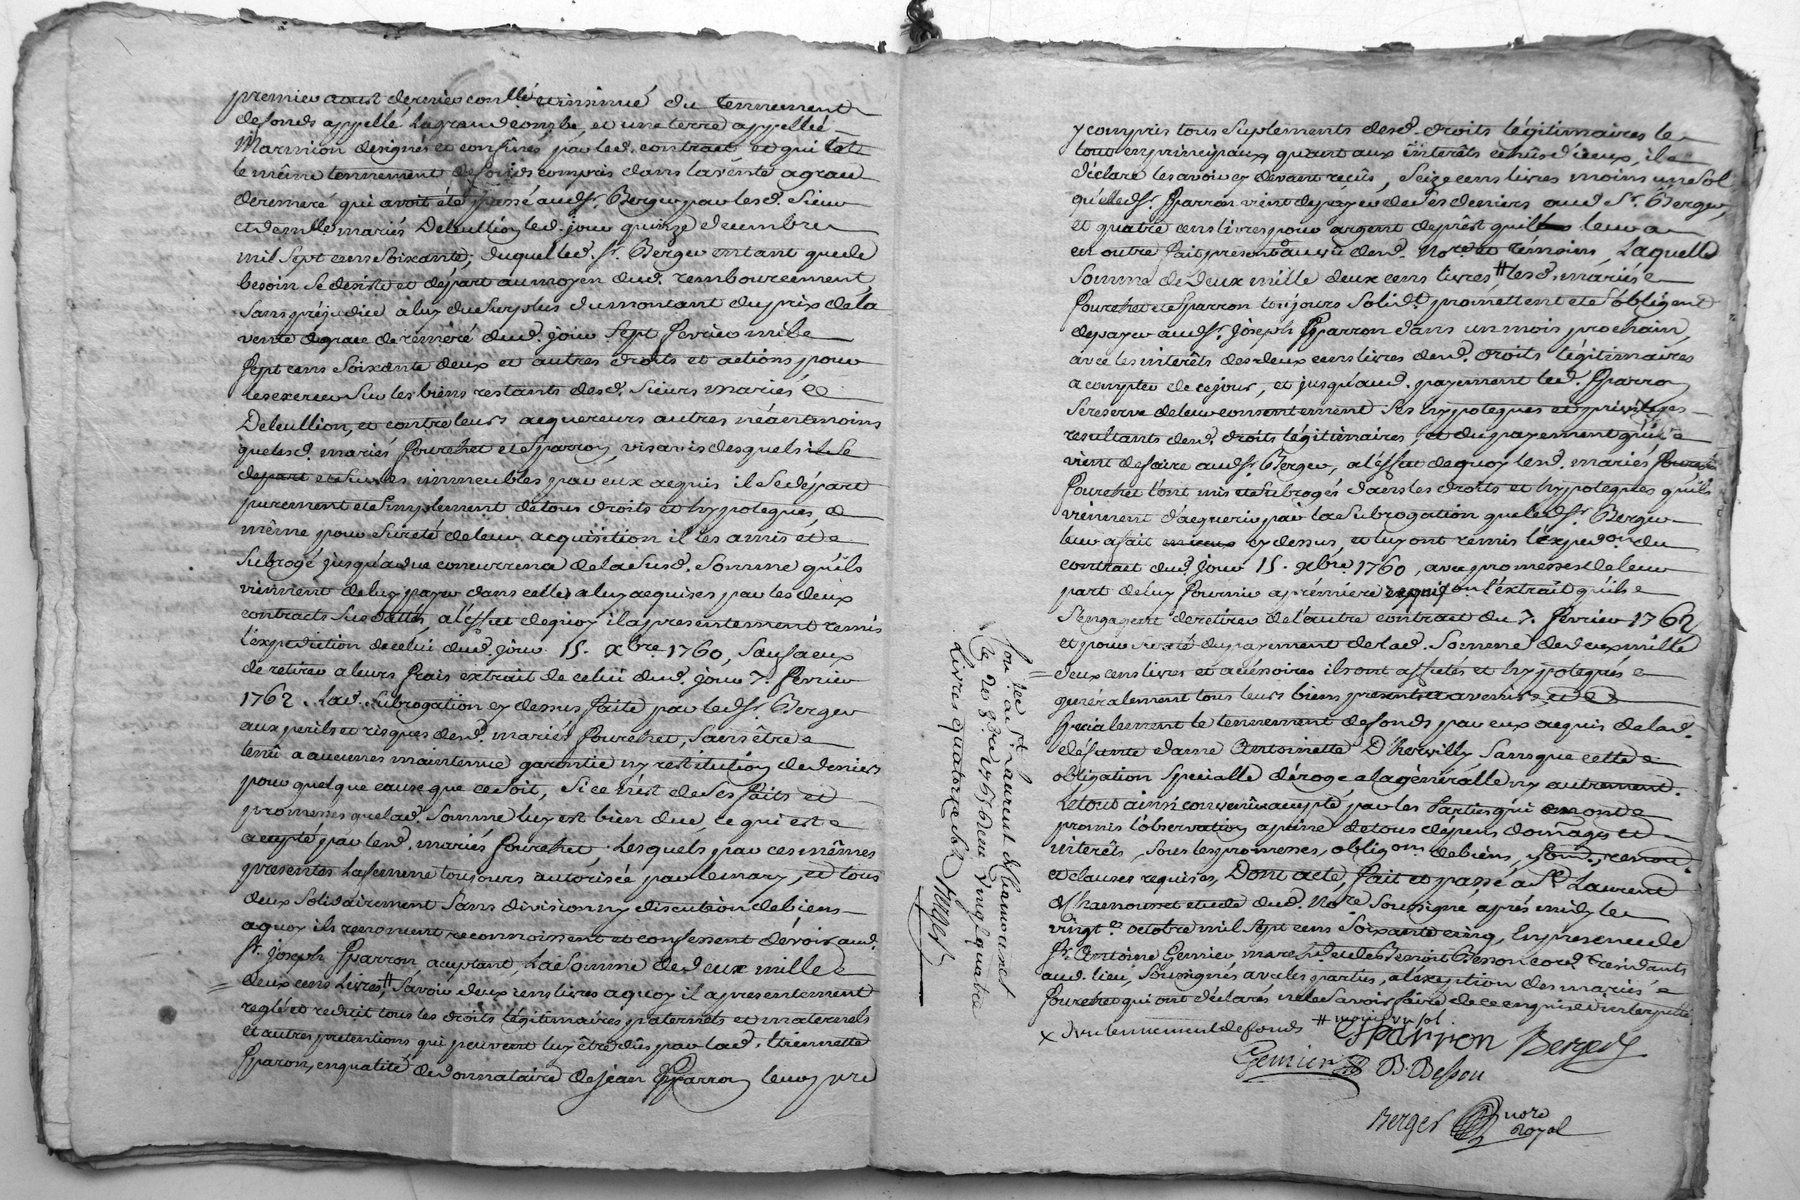 premier aoust dernier conllé et insinué du tennement
de fonds appellé Lagrand combe, et une terre appellée
Marinion designés et confinés par led. contract et qui est
le même tennement de fonds compris dans la vente a grace
de remeré qui avoit été passé aud. Sr. Berger par lesd. Sieur
et demlle mariés Deleullion led. jour quinze decembre
mil sept cens soixante; duquel led. Sr. Berger entant que de
besoin se desiste et départ au moyen dud. remboursement,
sans préjudice a luy du surplus du montant du prix de la
vente a grace de réméré dud. jour sept fevrier mil
sept cens soixante deux et autres droits et actions pour
les exercer sur les biens restants desd. sieurs mariés
Deleullion, et contre leurs acquereurs autres néantmoins
que lesd. mariés Pourchet et Sparron, vis avis desquels il se
départ et sur les immeubles par eux acquis il se départ
purement et simplement de tous droits et hypoteques, et
même pour sureté de leur acquisition il les a mis et
subrogé jusqu'a due concurrence de la susd. somme qu'ils
viennent de luy payer dans celles a luy acquises par les deux
contracts susdattés, a l'effet de quoy il a presentement remis
l'expedition de celui dud. jour 15. xbre 1760, sauf a eux
de retirer a leurs frais extrait de celui dud. jour 7. fevrier
1762. Lad. subrogation cy dessus faite par led. Sr. Berger
aux perils et risques desd. mariés Pourchet, sans être
tenu a aucunes maintenue garentie ny restitution de deniers
pour quelque cause que ce soit, si ce n'est de ses faits et
promesses que lad. somme luy est bien due, ce qui est
accepté par lesd. mariés Pourchet. Lesquels par ces mêmes
presentes la femme toujours autorisée par le mary, et tous
deux solidairement sans division ny discution de biens
a quoy ils renoncent reconnoissent et confessent devoir aud.
Sr. joseph Sparron acceptant, la somme de deux mille
deux cens Livres,# savoir deux cens livres a quoy il a presentement
reglé et reduit tous les droits légitimaires paternels et maternels
et autres pretentions qui peuvent luy être dûs par lad. Etiennette
Sparon, en qualité de donnataire de jean Sparron leur pere
y compris tous suplements desd. droits légitimaires le
tout en principaux, quant aux interêts echûs d'iceux, il a
déclaré les avoir cy devant reçûs, seize cens livres moins un sol
qu'elled. Sr. Sparron vient de payer de ses deniers aud. Sr. Berger,
et quatre cens livres pour argent de prêt qu'il leur a
en outre fait presentemt au vû dud. Nore. et témoins, Laquelle
somme de deux mille deux cens livres,# lesd. mariés
Pourchet et Sparron toujours solidt. promettent et s'obligent
de payer aud. Sr. joseph Sparron dans un mois prochain,
avec les interêts des deux cens livres desd. droits légitimaires
a compter de ce jour, et jusqu'aud. payement led. Sparron
se reserve de leur consentement ses hypoteques et privileges
resultants desd. droits légitimaires, et du payement qu'il
vient de faire aud. Sr. Berger, a l'effet de quoy lesd. mariés
Pourchet l'ont mis et subrogés dans les droits et hypoteques qu'ils
viennent d'acquerir par la subrogation que led. Sr. Berger
leur a fait cy dessus, et luy ont remis l'expedon. du
contract dud. jour 15. xbre 1760, avec promesse de leur
part de luy fournir a première requison l'extrait qu'ils
s'engagent de retirer de l'autre contract du 7. fevrier 1762
et pour sureté du payement de lad. somme de deux mille
deux cens livres et accessoires ils ont affectés et hypotequés
généralement tous leurs biens presents et avenirs, et
specialement le tennement de fonds par eux acquis de lad.
défunte dame Antoinette D'hervilly sans que cette
obligation specialle déroge a la généralle ny autrement.
Le tout ainsi convenû accepté par les parties qui en ont
promis l'observation a peine de tous depens domages et
interêts, sous les promesses, obligaons. de biens, soum., renon.
et clauses requises, Dont acte, fait et passé a St. Laurent
de Chamousset etude dud. Nore. soussigné après midy le
vingt e. octobre mil sept cens soixante cinq, En presence de
Sr. Antoine Gernier march. et de Benoit Besson cord. residants
aud. lieu, soussignés avec les parties, a l'exeption des mariés
Pourchet qui ont déclarés ne le savoir faire de ce enquis et interpellé
x du tennement de fonds # moins un sol.
Sparron Berger
Gernier B. Besson
Berger nore royal
Con. au St. Laurent de Chamousset
le 20 8bre 1765 reçu vingt quatre
Livres quatorze sols Berger